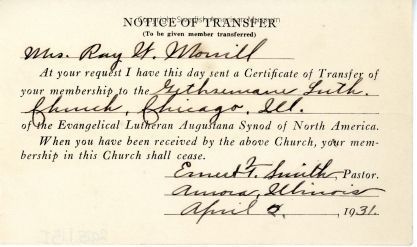 NOTICE OF TRANSFER
(To be given member transferred)
Mrs. Ray W. Morrill
At your request I have this day sent a Certificate of Transfer of
your membership to the Gethsemane Luth.
Church, Chicago, Ill.
of the Evangelical Lutheran Augustana Synod of North America.
When you have been received by the above Church, your mem-
bership in this Church shall cease.
Ernest F. Smith, Pastor.
Aurora, Illinois
April 2, 1931.